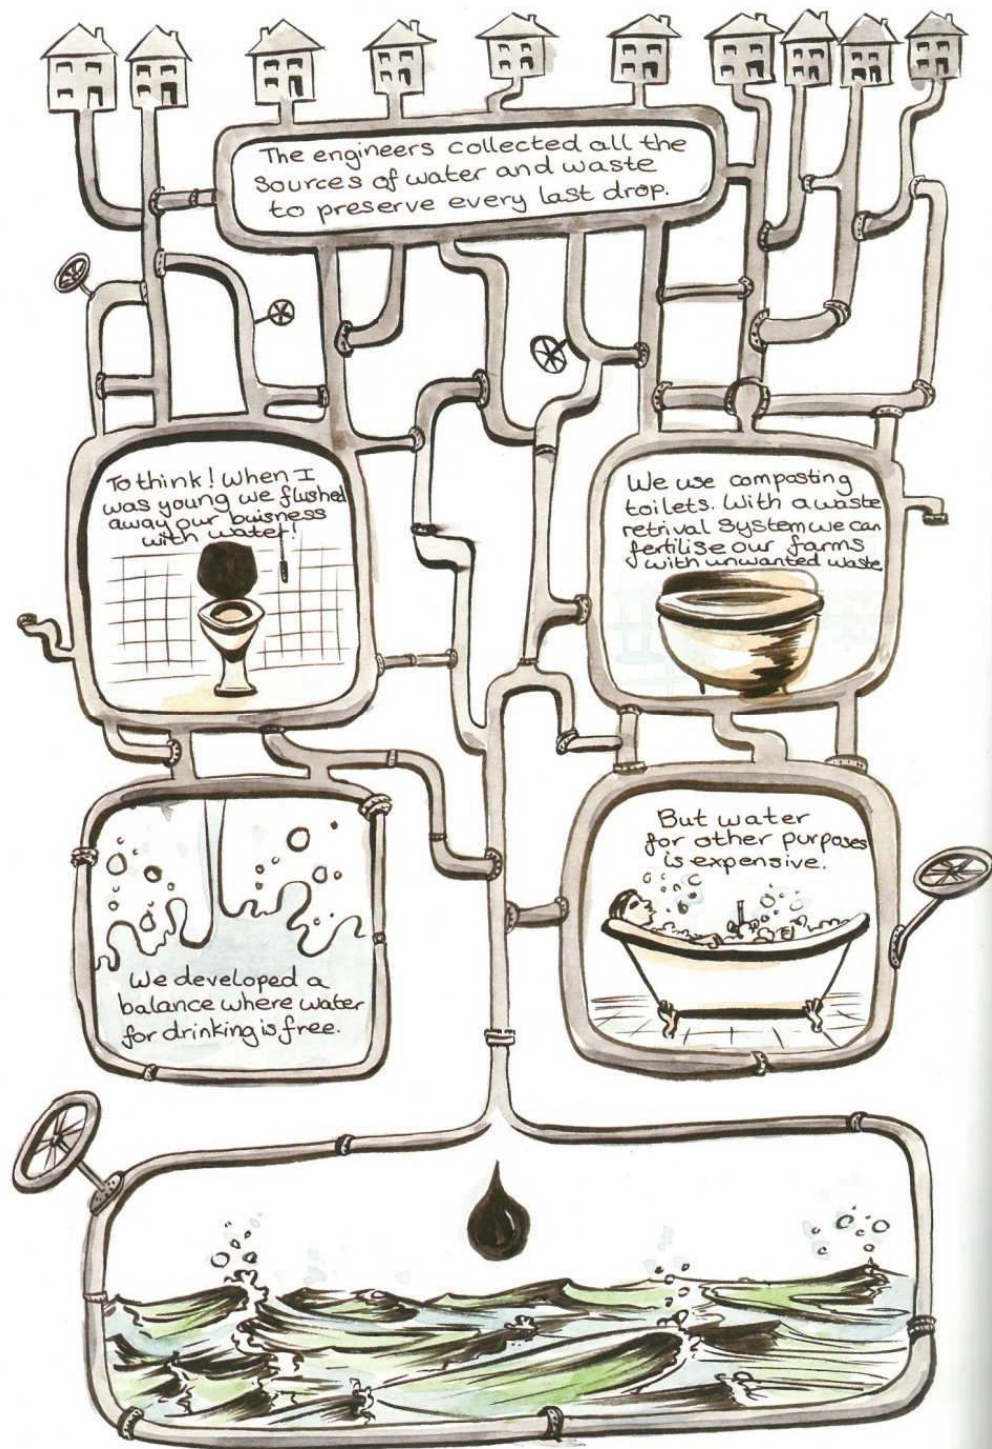 The engineers collected all the
sources of water and waste
to preserve every last drop.
To think! When I
was young we flushed
away our buisness
with water!
We use composting
toilets. With a waste
retrival System we can
fertilise our farms
with unwanted waste
We developed a
balance where water
for drinking is free.
But water
for other purposes
is expensive.